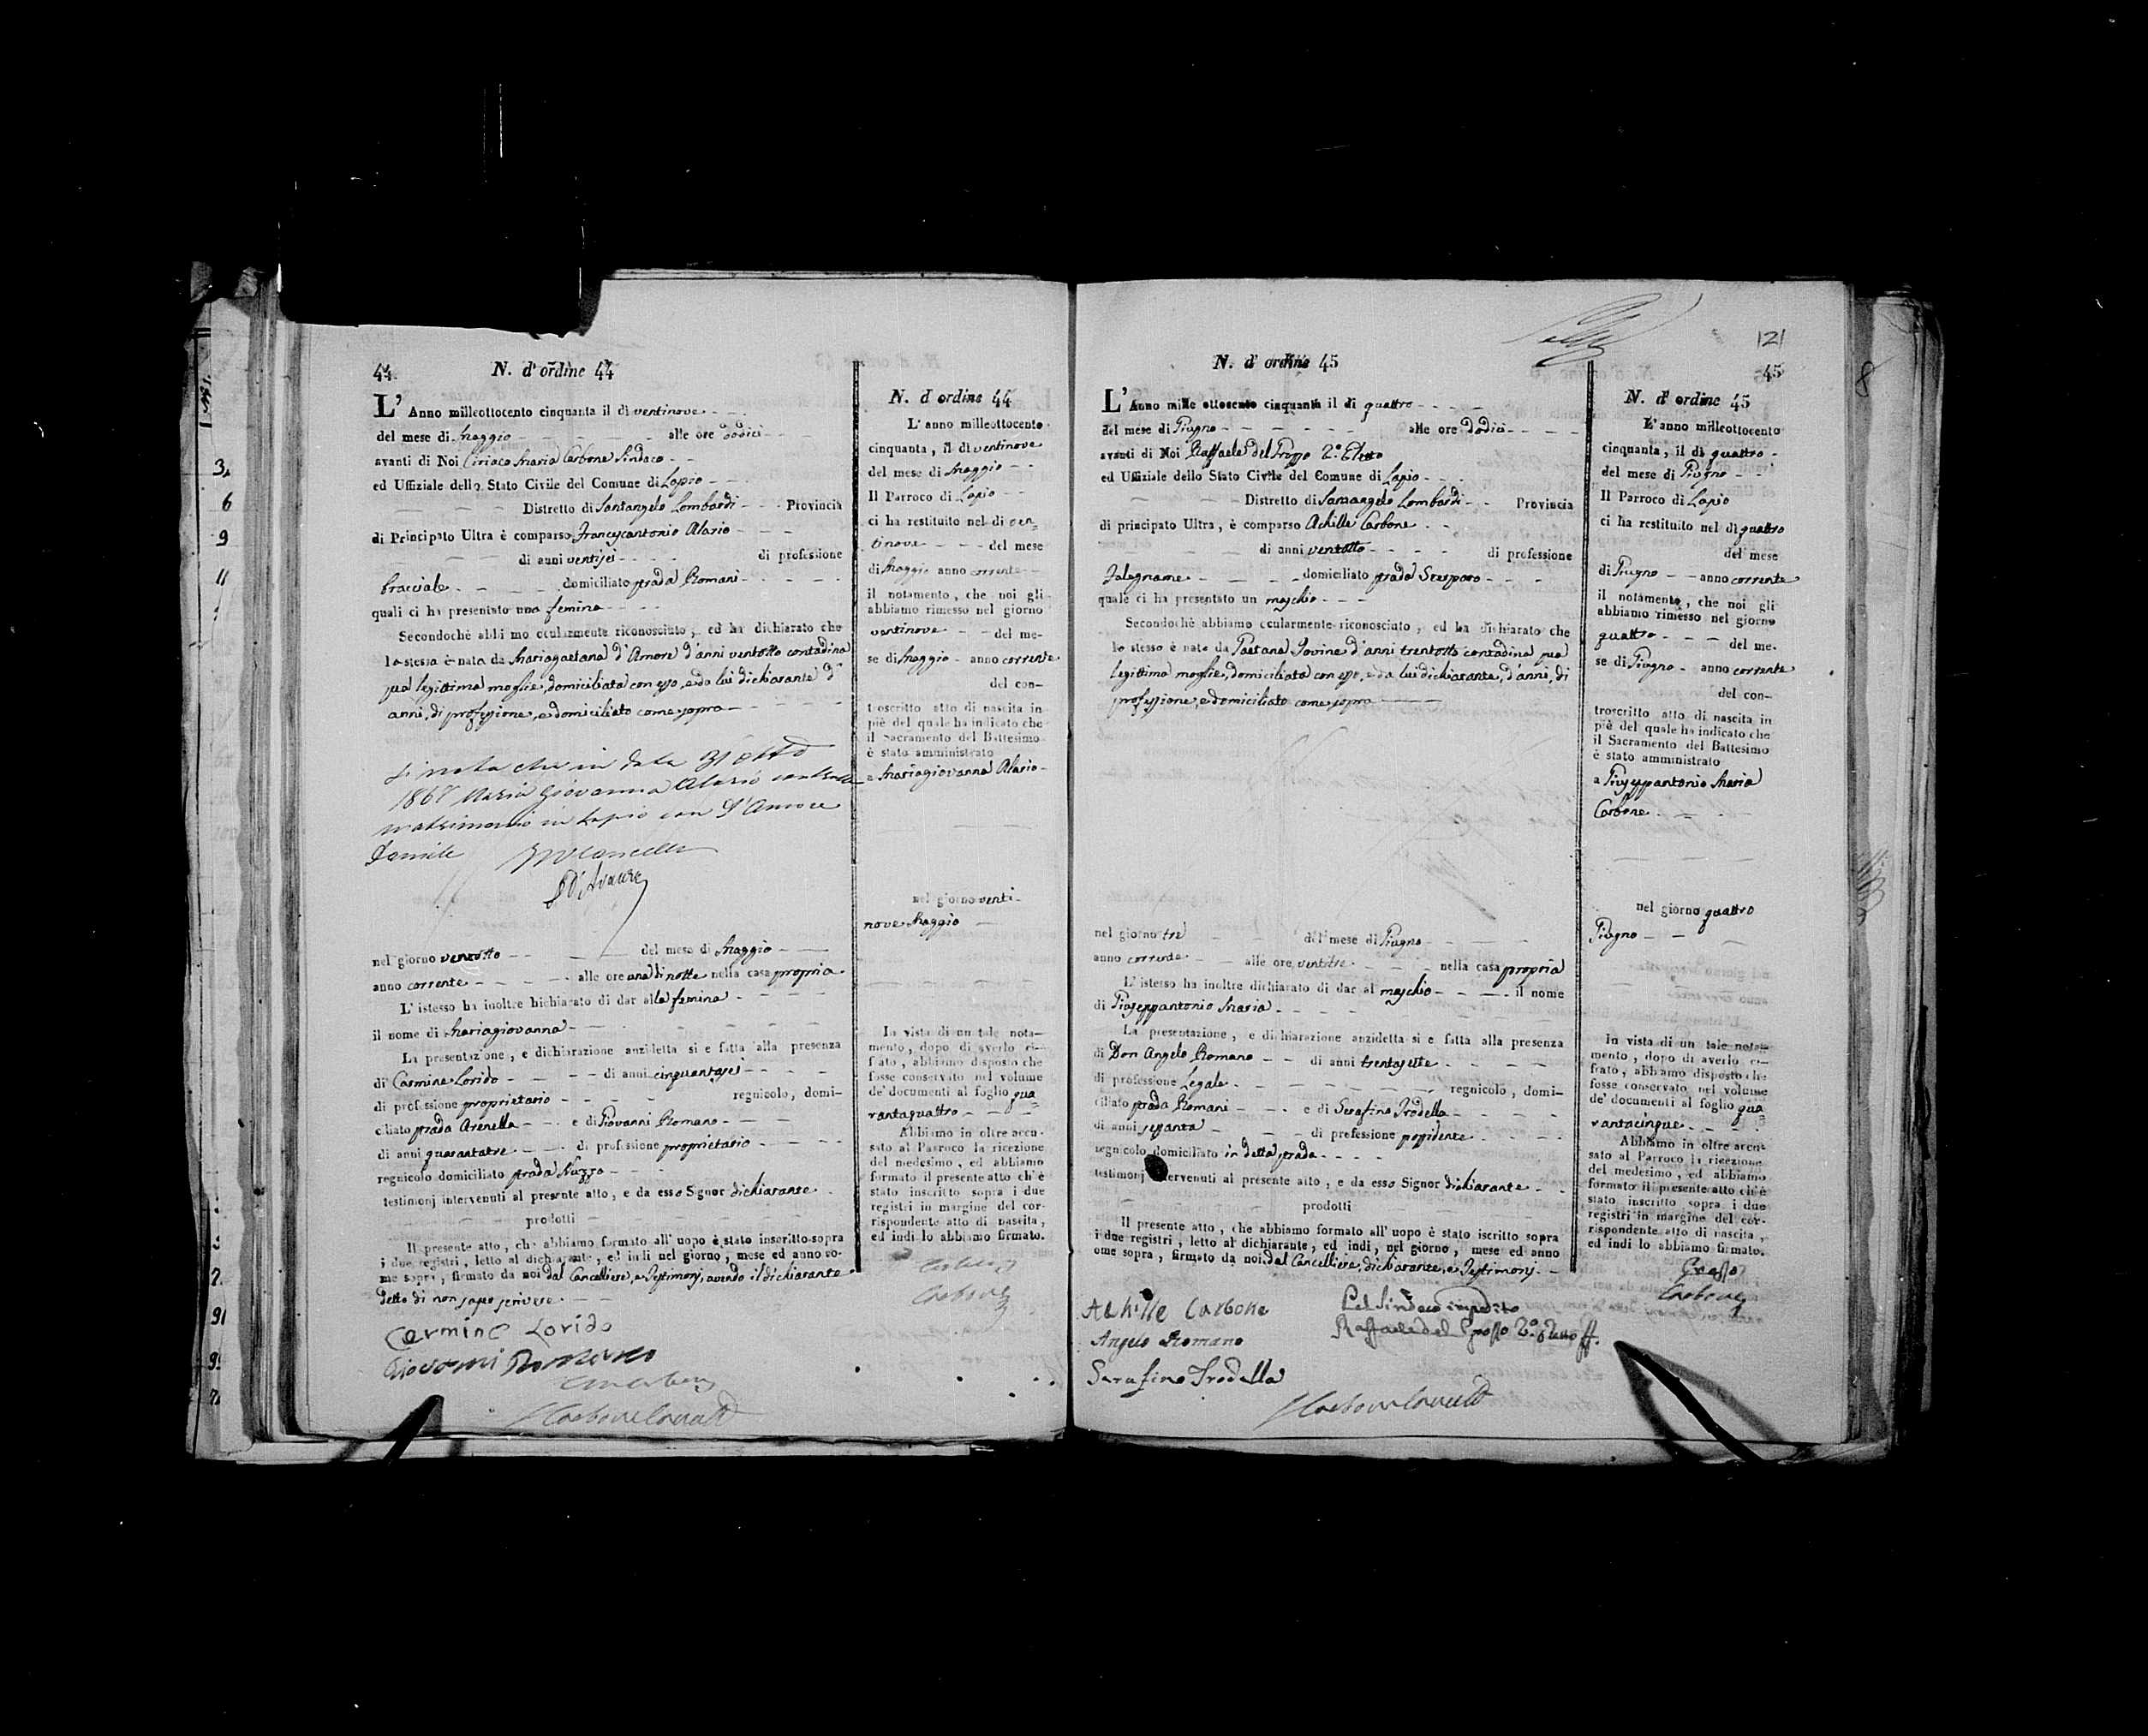 44.
N. d'ordine 44
L' Anno milleottocento cinquanta il dì ventinove
del mese di Maggio alle ore dodici
avanti di Noi Ciriaco Maria Carbone Sindaco
ed Uffiziale dello Stato Civile del Comune di Lapio
Distretto di Santangelo Lombardi Provincia
di Principato Ultra è comparso Francescantonio Alario
di anni ventisei di professione
bracciale domiciliato strada Romani
quali ci ha presentato una femina
Secondochè abbi mo ocularmente riconosciuto, ed ha dichiarato che
la stessa è nata da Mariagaetana d'Amore d'anni ventotto contadina
sua legittima moglie, domiciliata con esso, e da lui dichiarante d'
anni, di professione, e domiciliato come sopra
Si nota che in data 31 ott
1867 Maria Giovanna Alario
matrimonio in Lapio con D'Amore
nel giorno ventotto del mese di Maggio
anno corrente alle ore una di notte nella casa propria
L'istesso ha inoltre hichiarato di dar alla femina
il nome di Mariagiovanna
La presentazione, e dichiarazione anzidetta si e fatta alla presenza
di Carmine Lorido di anni cinquantasei
di professione proprietario regnicolo, domi-
ciliato strada Arenella e di Giovanni Romano
di anni quarantatre di professione proprietario
regnicolo domiciliato strada Nuzzo
testimonj intervenuti al presente atto, e da esso Signor dichiarante
prodotti
Il presente atto, che abbiamo formato all' uopo è stato inscritto sopra
i due registri, letto al dichiarante, ed indi nel giorno, mese ed anno co-
me sopra, firmato da noi dal Cancelliere, e Testimonj, avendo il dichiarante
detto di non saper scrivere
Carmine Lorido
Giovanni Romano
N. d ordine 44
L' anno milleottocento
cinquanta, il dì ventinove
del mese di Maggio
Il Parroco di Lapio
ci ha restituito nel dì ven=
tinove del mese
di Maggio anno corrente
il notamento, che noi gli
abbiamo rimesso nel giorno
ventinove del me-
se di Maggio anno corrente
del con-
troscritto atto di nascita in
piè del quale ha indicato che
il Sacramento del Battesimo
è stato amministrato
a Mariagiovanna Alario
nel giorno venti-
nove Maggio
In vista di un tale nota-
mento, dopo di averlo ci-
frato, abbiamo disposto che
fosse conservato nel volume
de' documenti al foglio qua=
rantaquattro
Abbiamo in oltre accu-
sato al Parroco la ricezione
del medesimo, ed abbiamo
formato il presente atto ch'è
stato inscritto sopra i due
registri in margine del cor-
rispondente atto di nascita,
ed indi lo abbiamo firmato.
Carbone
121
45
N. d' ordine 45
L' Anno mille ottocento cinquanta il dì quattro
del mese di Giugno alle ore dodici
avanti di Noi Raffaele del Grosso 2.º Eletto
ed Uffiziale dello Stato Civile del Comune di Lapio
Distretto di Santangelo Lombardi Provincia
di principato Ultra, è comparso Achille Carbone
di anni ventotto di professione
falegname domiciliato strada
quale ci ha presentato un maschio
Secondochè abbiamo ocularmente riconosciuto, ed ha dichiarato che
lo stesso è nato da Gaetana Iovine d'anni trentotto contadina sua
legittima moglie, domiciliata con esso, e da lui dichiarante, d'anni, di
professione, e domiciliato come sopra
nel giorno tre del mese di Giugno
anno corrente alle ore ventitre nella casa propria
L' istesso ha inoltre dichiarato di dar al maschio il nome
di Giuseppantonio Maria
La presentazione, e dichiarazione anzidetta si e fatta alla presenza
di Don Angelo Romano di anni trentasette
di professione Legale regnicolo, domi-
ciliato strada Romani e di Serafino Trodella
di anni sessanta di prefessione possidente
regnicolo domiciliato in detta strada
testimonj intervenuti al presente atto, e da esso Signor dichiarante
prodotti
Il presente atto, che abbiamo formato all' uopo è stato iscritto sopra
i due registri, letto al dichiarante, ed indi, nel giorno, mese ed anno
ome sopra, firmato da noi, dal Cancelliere, dichiarante, e Testimonj.
Achille Carbone
Angelo Romano
Serafino Trodella
Pel Sindaco impedito
Raffaele del Grosso 2.º Eletto ff.
N. d' ordine 45
L' anno milleottocento
cinquanta, il dì quattro
del mese di Giugno
Il Parroco di Lapio
ci ha restituito nel dì quattro
del mese
di Giugno anno corrente
il notamento, che noi gli
abbiamo rimesso nel giorno
quattro del me-
se di Giugno anno corrente
del con-
troscritto atto di nascita in
piè del quale ha indicato che
il Sacramento del Battesimo
è stato amministrato
a Giuseppantonio Maria
Carbone
nel giorno quattro
Giugno
In vista di un tale nota-
mento, dopo di averlo ci-
frato, abbiamo disposto che
fosse conservato nel volume
de' documenti al foglio qua=
rantacinque
Abbiamo in oltre accu-
sato al Parroco la ricezione
del medesimo, ed abbiamo
formato il presente atto ch'è
stato inscritto sopra i due
registri in margine del cor-
rispondente atto di nascita,
ed indi lo abbiamo firmato.
Grosso
Carbone